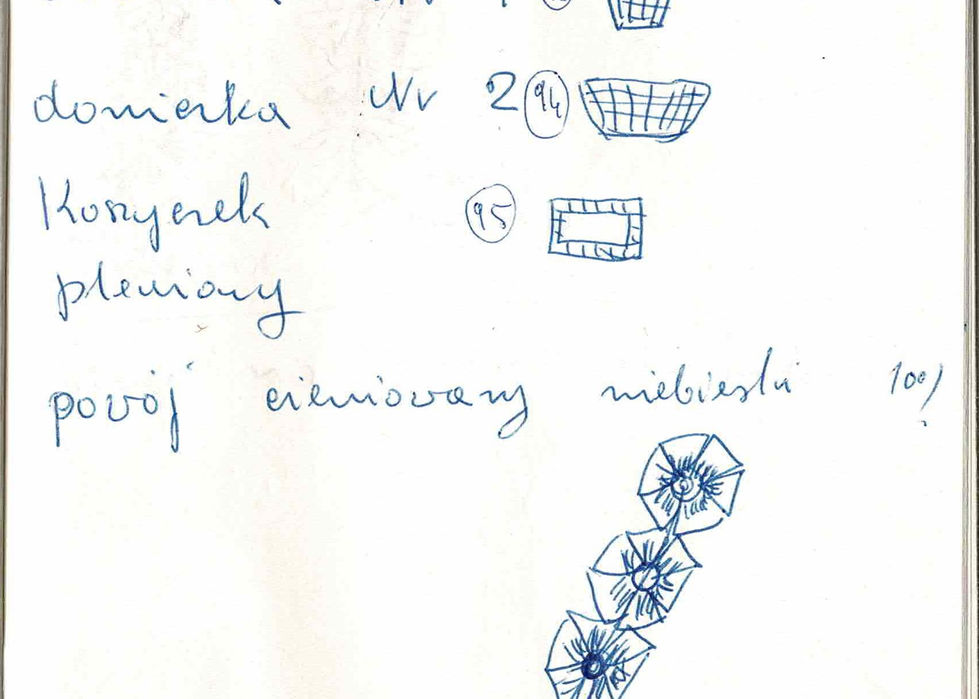 doniczka Nr 2 94
Koszyczek 95
pleciony
powój cieniowany niebieski 100